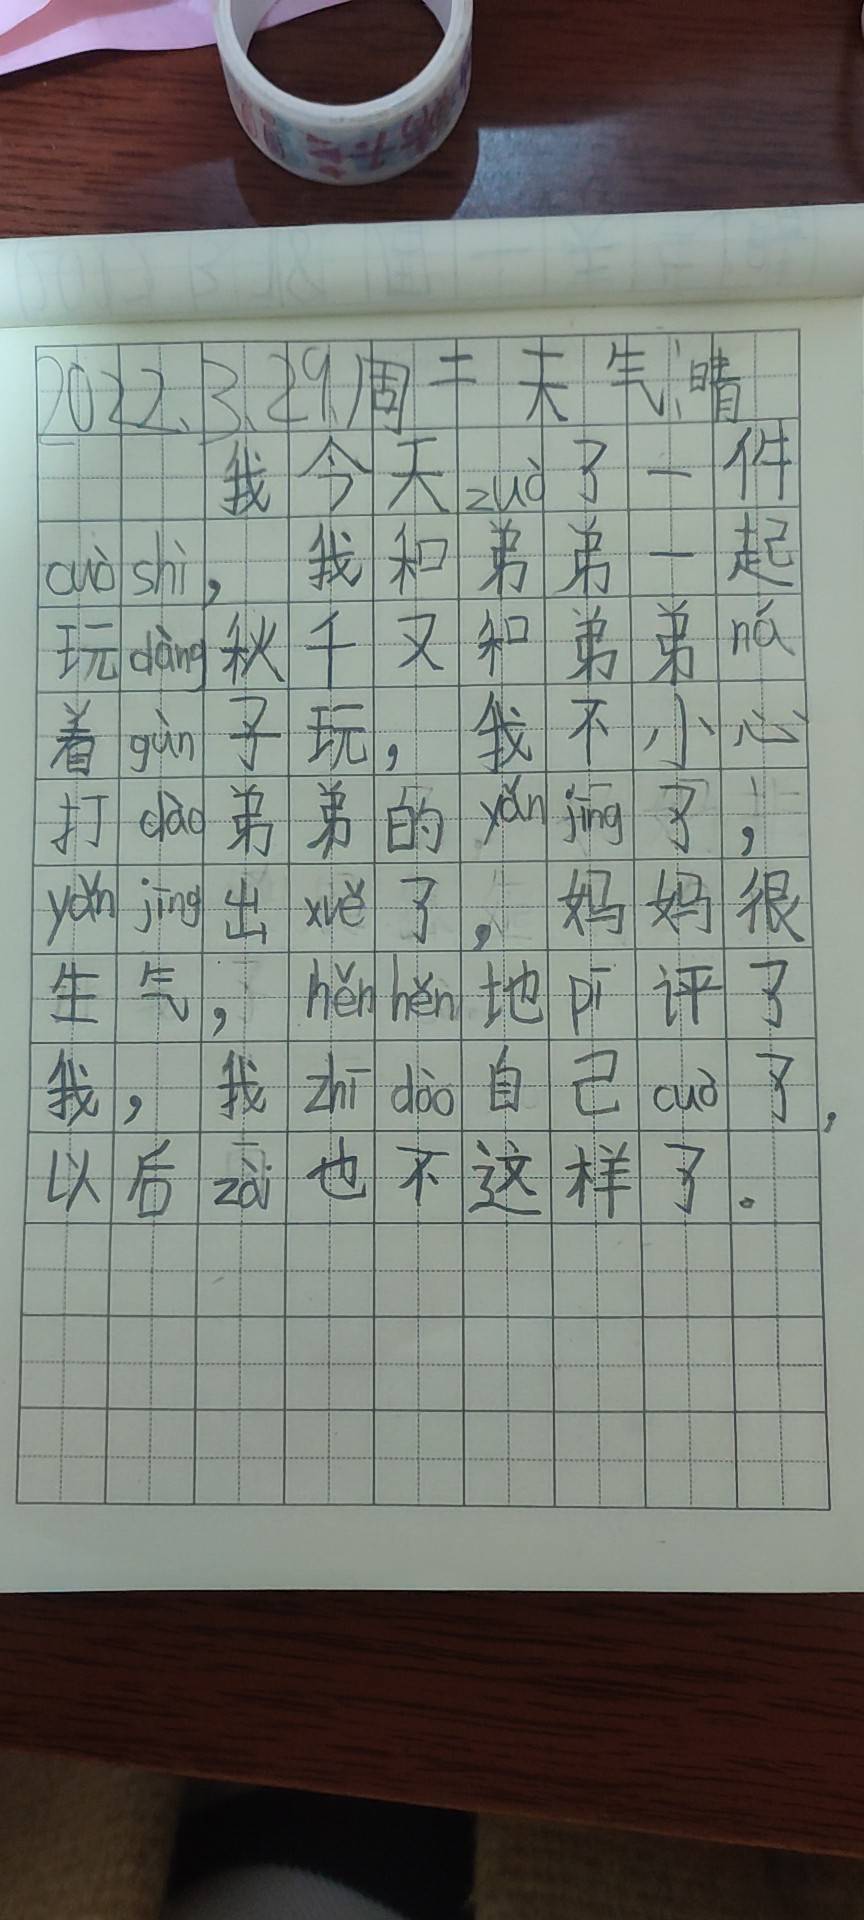 2022.3.29.周二天气:晴
我今天zuò了一件
cuò shì，我和弟弟一起
玩dàng秋千又和弟弟ná
着gùn子玩，我不小心
打dào弟弟的yǎn jīng了，
yǎn jīng出xuě了，妈妈很
生气，hěn hěn地pī评了
我，我zhī dào自己cuò了，
以后zài也不这样了。